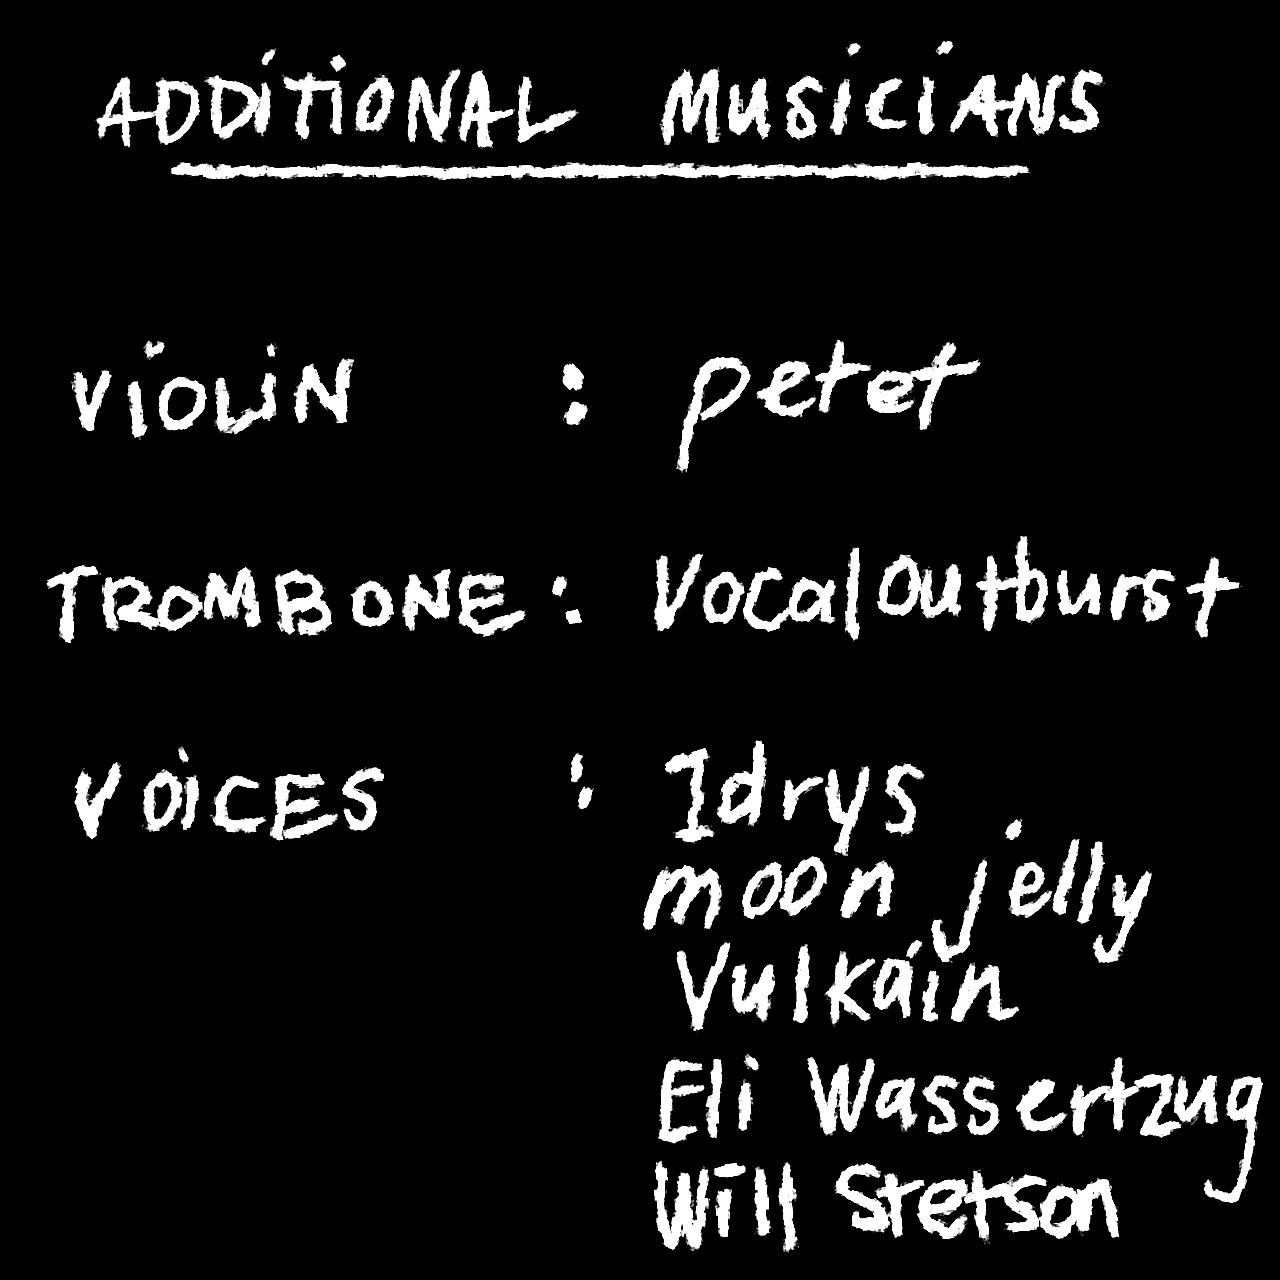 ADDiTiONAL MUSiCiANS
ViOLiN : petet
TROMBONE : VocalOutburst
VOiCES : Idrys
moon jelly
Vulkáin
Eli Wassertzug
Will Stetson